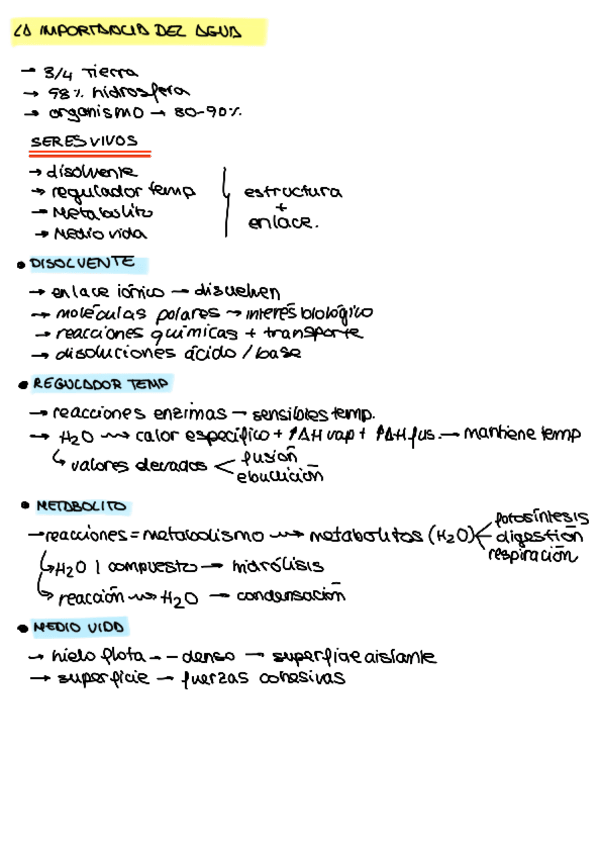 LA IMPORTANCIA DEL AGUA
→ 3/4 Tierra
→ 98% hidrosfera
→ organismo → 80-90%
SERES VIVOS
→ disolvente
→ regulador temp
→ Metabolito
→ Medio vida
estructura
+
enlace.
• DISOLVENTE
→ enlace iónico → disuelven
→ moléculas polares → interés biológico
→ reacciones químicas + transporte
→ disoluciones ácido / base
• REGULADOR TEMP
→ reacciones enzimas → sensibles temp.
→ H₂O → calor específico + ↑ΔH vap + ↑ΔH fus. → mantiene temp
↳ valores elevados < fusión
ebullición
• METABOLITO
→ reacciones = metabolismo → metabolitos (H₂O) < fotosíntesis
digestión
respiración
↳ H₂O | compuesto → hidrólisis
↳ reacción → H₂O → condensación
• MEDIO VIDA
→ hielo flota - - denso → superficie aislante
→ superficie → fuerzas cohesivas